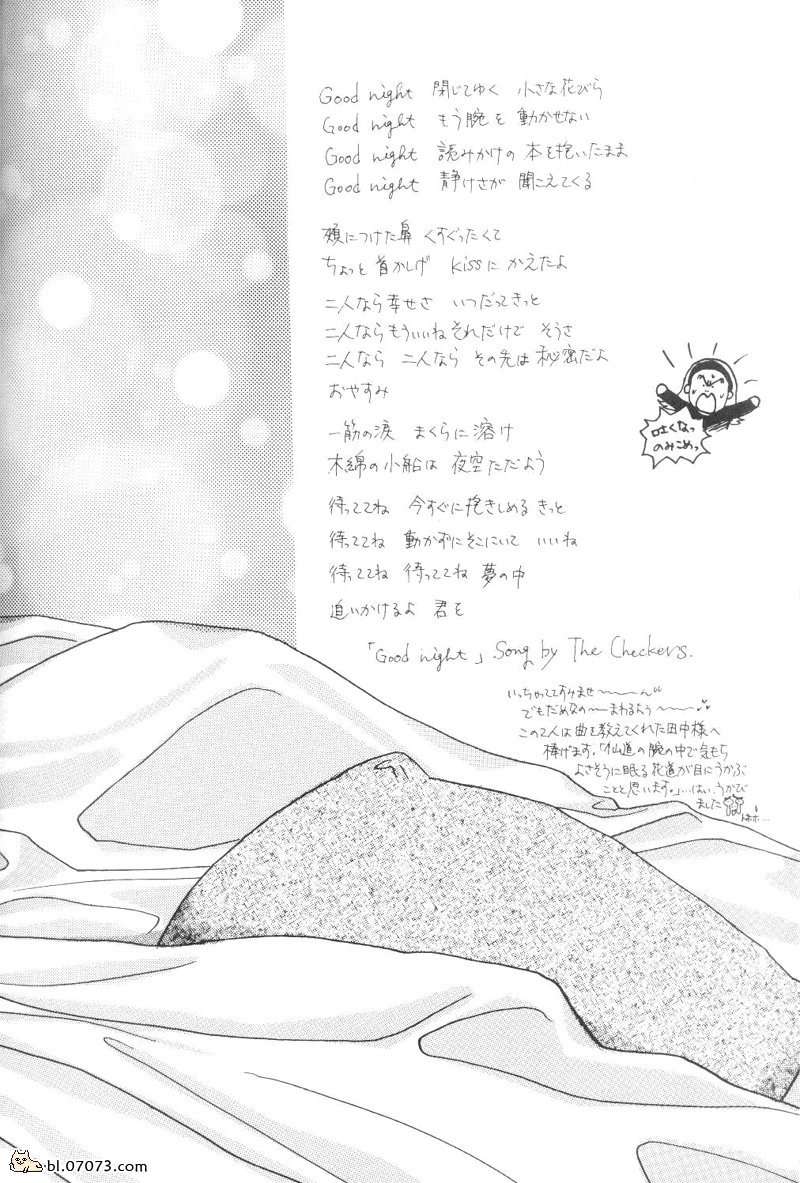 Good night 閉じてゆく 小さな花びら
Good night もう腕を 動かせない
Good night 読みかけの 本を抱いたまま
Good night 静けさが 聞こえてくる
頬につけた鼻 くすぐったくて
ちょっと首かしげ kissに かえたよ
二人なら幸せさ いつだってきっと
二人ならもういいねそれだけで そうさ
二人なら 二人なら その先は 秘密だよ
おやすみ
吐くなっ
のみこめっ
一筋の涙 まくらに溶け
木綿の小船は 夜空ただよう
待っててね 今すぐに抱きしめる きっと
待っててね 動かずにそこにいて いいね
待っててね 待っててね 夢の中
追いかけるよ 君を
「Good night」 Song by The Checkers.
いっちゃっててすみませ〜〜ん
でもだめなの〜まわるよう〜〜
この2人は曲を教えてくれた田中様へ
捧げます。「仙道の腕の中で気もち
よさそうに眠る花道が目にうかぶ
ことと思います。」…はい、うかび
ました
bl.07073.com